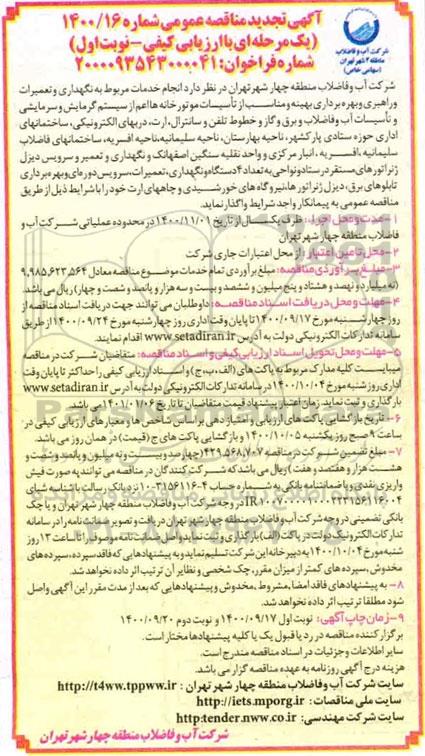 آگهی تجدید مناقصه عمومی شماره ۱۴۰۰/۱۶
(یک مرحله‌ای با ارزیابی کیفی - نوبت اول)
شماره فراخوان: ۲۰۰۰۰۹۳۵۴۳۰۰۰۰۴۱
شرکت آب و فاضلاب
منطقه ۴ شهر تهران
(سهامی خاص)
شرکت آب و فاضلاب منطقه چهار شهر تهران در نظر دارد انجام خدمات مربوط به نگهداری و تعمیرات
و راهبری و بهره برداری بهینه و مناسب از تأسیسات موتورخانه ها اعم از سیستم گرمایش و سرمایشی
و تأسیسات آب و فاضلاب و برق و گاز و خطوط تلفن و سانترال، ارت، دربهای الکترونیکی، ساختمانهای
اداری حوزه ستادی پارکشهر، ناحیه بهارستان، ناحیه سلیمانیه، ناحیه افسریه، ساختمانهای فاضلاب
سلیمانیه، افسریه، انبار مرکزی و واحد نقلیه سنگین اصفهانک و نگهداری و تعمیر و سرویس دیزل
ژنراتورهای مستقر در ستاد و نواحی به تعداد ۴ دستگاه و نگهداری، تعمیرات، سرویس دوره‌ای و بهره برداری
تابلوهای برق، دیزل ژنراتورها، نیروگاه های خورشیدی و چاههای ارت خود را با شرایط ذیل از طریق
مناقصه عمومی به پیمانکار واجد شرایط واگذار نماید.
۱- مدت و محل اجرا: ظرف یکسال از تاریخ ۱۴۰۰/۱۱/۰۱ در محدوده عملیاتی شرکت آب و
فاضلاب منطقه چهار شهر تهران
۲- محل تأمین اعتبار: از محل اعتبارات جاری شرکت
۳- مبلغ برآوردی مناقصه: مبلغ برآوردی تمام خدمات موضوع مناقصه معادل ۹,۹۸۵,۶۲۳,۵۶۴
(نه میلیارد و نهصد و هشتاد و پنج میلیون و ششصد و بیست و سه هزار و پانصد و شصت و چهار) ریال می باشد.
۴- مهلت و محل دریافت اسناد مناقصه: داوطلبان می توانند جهت دریافت اسناد مناقصه از
روز چهارشنبه مورخ ۱۴۰۰/۰۹/۱۷ تا پایان وقت اداری روز چهارشنبه مورخ ۱۴۰۰/۰۹/۲۴ از طریق
سامانه تدارکات الکترونیکی دولت به آدرس www.setadiran.ir اقدام نمایند.
۵- مهلت و محل تحویل اسناد ارزیابی کیفی و اسناد مناقصه: متقاضیان شرکت در مناقصه
میبایست کلیه مدارک مربوط به پاکت های (الف، ب، ج) و اسناد ارزیابی کیفی را حداکثر تا پایان وقت
اداری روز شنبه مورخ ۱۴۰۰/۱۰/۰۴ در سامانه تدارکات الکترونیکی دولت به آدرس www.setadiran.ir
بارگذاری و ثبت نماید. زمان اعتبار پیشنهاد قیمت متقاضیان تا تاریخ ۱۴۰۱/۰۱/۰۶ می باشد.
۶- تاریخ بازگشایی پاکت های ارزیابی و امتیاز دهی بر اساس شاخص ها و معیارهای ارزیابی کیفی در
ساعت ۹ صبح روز یکشنبه ۱۴۰۰/۱۰/۰۵ و بازگشایی پاکت های ج (قیمت) در همان روز می باشد.
۷- مبلغ تضمین شرکت در مناقصه ۴۲۹,۵۶۸,۷۰۷ (چهارصد و بیست و نه میلیون و پانصد و شصت و
هشت هزار و هفتصد و هفت) ریال می باشد که شرکت کنندگان در مناقصه می توانند به صورت فیش
واریزی نقدی و یا ضمانتنامه بانکی به شماره حساب
نزد بانک رسالت با شناسه شبای
در وجه شرکت آب و فاضلاب منطقه چهار شهر تهران و یا چک
بانکی تضمینی در وجه شرکت آب و فاضلاب منطقه چهار شهر تهران دریافت و تصویر ضمانت نامه را در سامانه
تدارکات الکترونیک دولت در پاکت (الف) بارگذاری و ثبت نماید و اصل ضمانت نامه موصوف را تا ساعت ۱۳ روز
شنبه مورخ ۱۴۰۰/۱۰/۰۴ به دبیرخانه این شرکت تسلیم نماید و به پیشنهادهایی که فاقد سپرده، سپرده های
مخدوش، سپرده های کمتر از میزان مقرر، چک شخصی و نظایر آن ترتیب اثر داده نخواهد شد.
۸- به پیشنهادهای فاقد امضا، مشروط، مخدوش و پیشنهادهایی که بعد از مدت مقرر این آگهی واصل
شود مطلقا ترتیب اثر داده نخواهد شد.
۹- زمان چاپ آگهی: نوبت اول ۱۴۰۰/۰۹/۱۷ و نوبت دوم ۱۴۰۰/۰۹/۲۰
برگزار کننده مناقصه در رد یا قبول یک یا کلیه پیشنهادها مختار است.
سایر اطلاعات و جزئیات در اسناد مناقصه مندرج است.
هزینه درج آگهی روزنامه به عهده مناقصه گزار می باشد.
سایت شرکت آب و فاضلاب منطقه چهار شهر تهران : http://t4ww.tppww.ir
سایت ملی مناقصات: http://iets.mporg.ir
سایت شرکت مهندسی: http:tender.nww.co.ir
شرکت آب و فاضلاب منطقه چهار شهر تهران